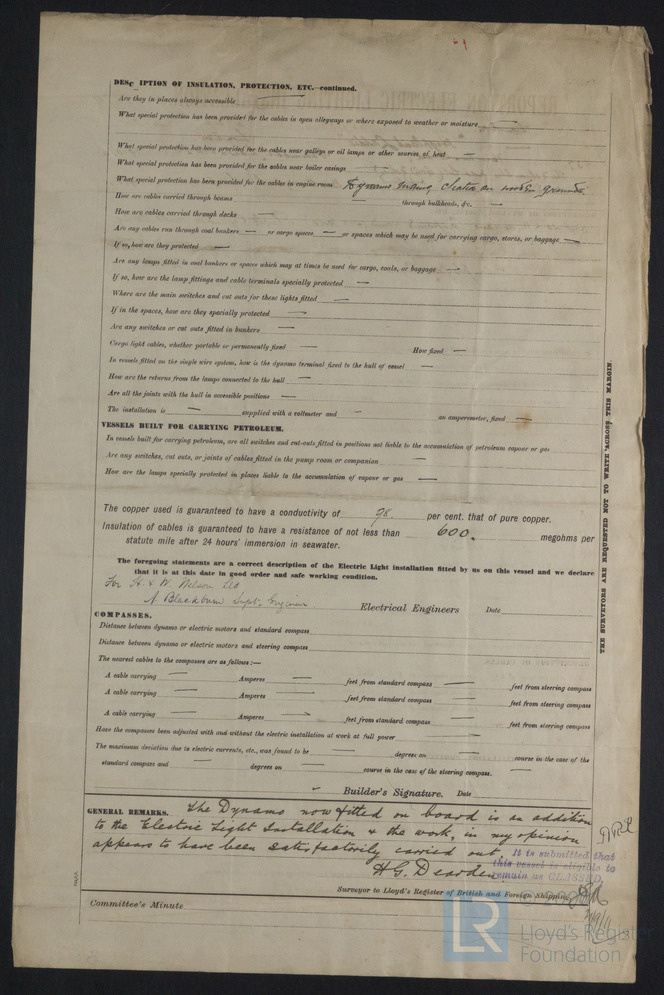 DESC IPTION OF INSULATION, PROTECTION, ETC.—continued.
Are they in places always accessible —
What special protection has been provided for the cables in open alleyways or where exposed to weather or moisture —
What special protection has been provided for the cables near galleys or oil lamps or other sources of heat —
What special protection has been provided for the cables near boiler casings
What special protection has been provided for the cables in engine room Dynamo wiring cleated on wooden grounds.
How are cables carried through beams — through bulkheads, &c. —
How are cables carried through decks —
Are any cables run through coal bunkers — or cargo spaces — or spaces which may be used for carrying cargo, stores, or baggage —
If so, how are they protected —
Are any lamps fitted in coal bunkers or spaces which may at times be used for cargo, coals, or baggage —
If so, how are the lamp fittings and cable terminals specially protected —
Where are the main switches and cut outs for these lights fitted —
If in the spaces, how are they specially protected —
Are any switches or cut outs fitted in bunkers —
Cargo light cables, whether portable or permanently fixed — How fixed —
In vessels fitted on the single wire system, how is the dynamo terminal fixed to the hull of vessel —
How are the returns from the lamps connected to the hull —
Are all the joints with the hull in accessible positions —
The installation is — supplied with a voltmeter and — an amperemeter, fixed —
VESSELS BUILT FOR CARRYING PETROLEUM.
In vessels built for carrying petroleum, are all switches and cut-outs fitted in positions not liable to the accumulation of petroleum vapour or gas
Are any switches, cut outs, or joints of cables fitted in the pump room or companion —
How are the lamps specially protected in places liable to the accumulation of vapour or gas —
The copper used is guaranteed to have a conductivity of 98. per cent. that of pure copper.
Insulation of cables is guaranteed to have a resistance of not less than 600. megohms per
statute mile after 24 hours' immersion in seawater.
The foregoing statements are a correct description of the Electric Light installation fitted by us on this vessel and we declare
that it is at this date in good order and safe working condition.
For H. & W. Nelson Ltd
A. Blackburn Supt. Engineer Electrical Engineers Date
COMPASSES.
Distance between dynamo or electric motors and standard compass
Distance between dynamo or electric motors and steering compass
The nearest cables to the compasses are as follows:—
A cable carrying — Amperes — feet from standard compass — feet from steering compass
A cable carrying — Amperes — feet from standard compass — feet from steering compass
A cable carrying — Amperes — feet from standard compass — feet from steering compass
Have the compasses been adjusted with and without the electric installation at work at full power —
The maximum deviation due to electric currents, etc., was found to be — degrees on — course in the case of the
standard compass and — degrees on — course in the case of the steering compass. —
Builder's Signature. Date
GENERAL REMARKS. The Dynamo now fitted on board is an addition
to the Electric Light Installation & the work, in my opinion
appears to have been satisfactorily carried out.
It is submitted that
this vessel is eligible to
remain as CLASSED.
H G. Dearden
Surveyor to Lloyd's Register of British and Foreign Shipping
Committee's Minute
THE SURVEYORS ARE REQUESTED NOT TO WRITE ACROSS THIS MARGIN.
LR
Lloyd's Register
Foundation